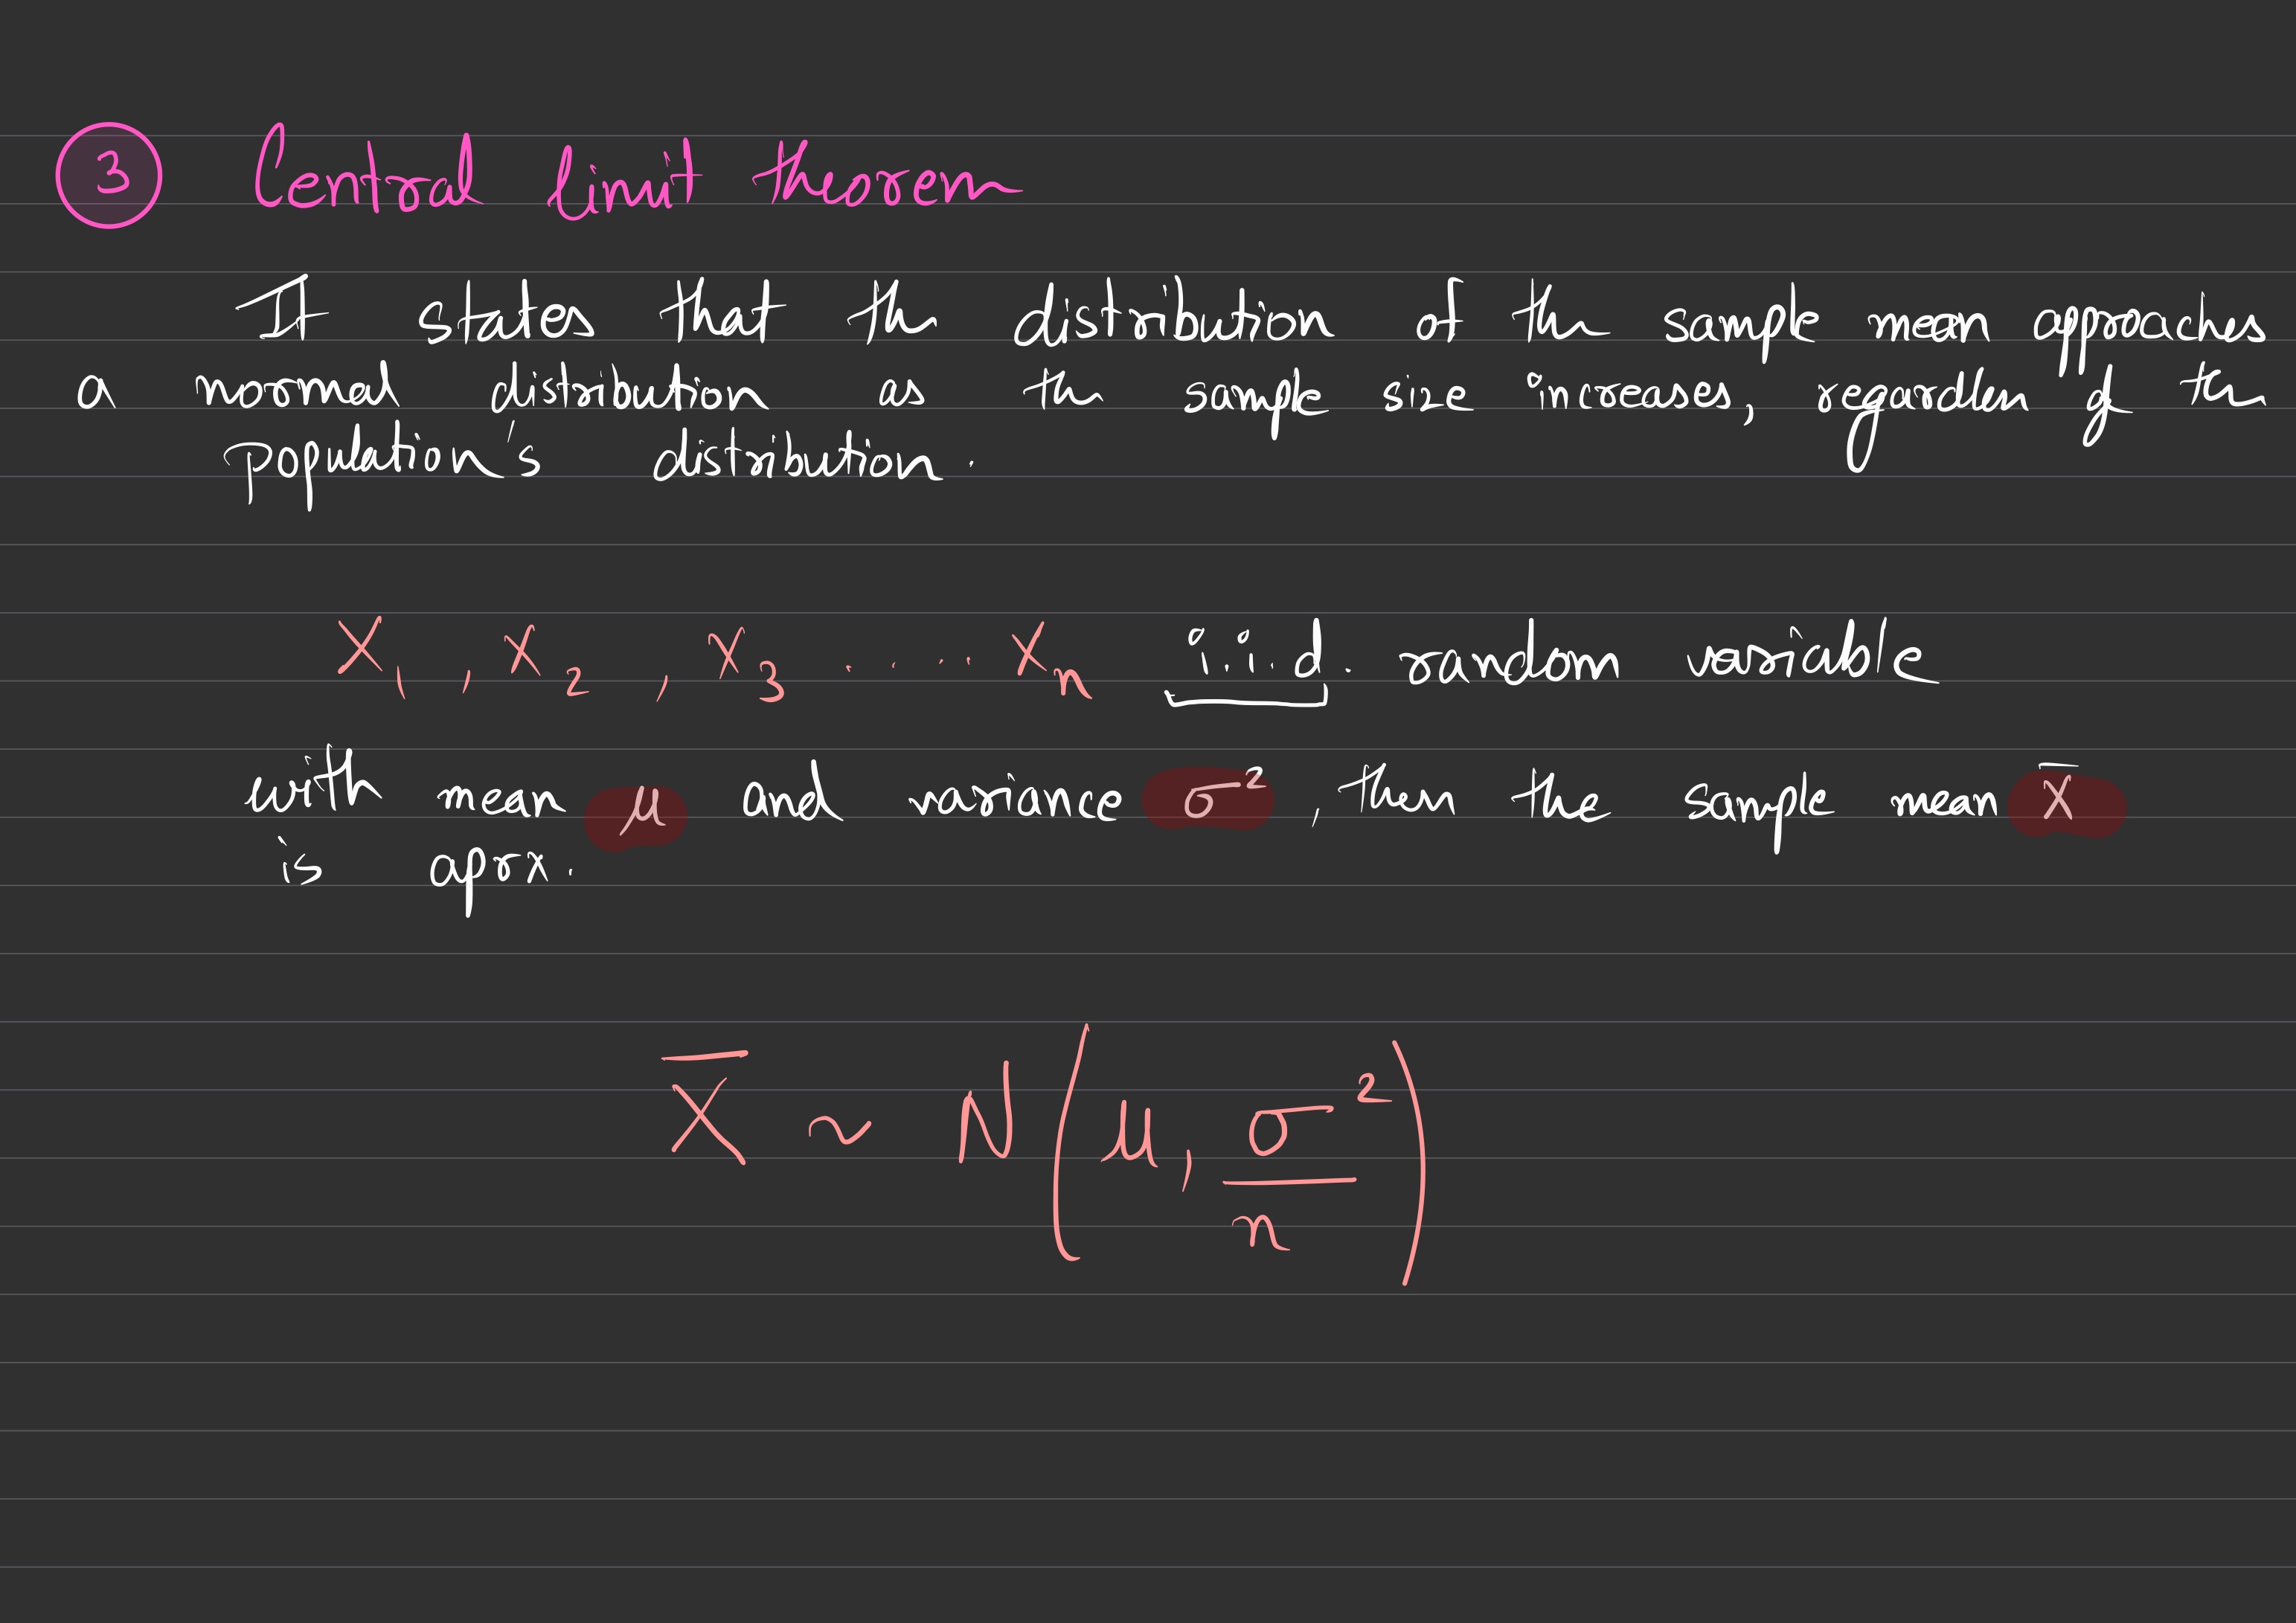 3 Central limit theorem
It states that the distribution of the sample mean approaches
a normal distribution as the sample size increases, regardless of the
population's distribution.
X₁, X₂, X₃ ..... Xₙ i.i.d. random variable
with mean μ and variance σ², then the sample mean X̄
is aprx.
X̄ ~ N(μ, σ²/n)